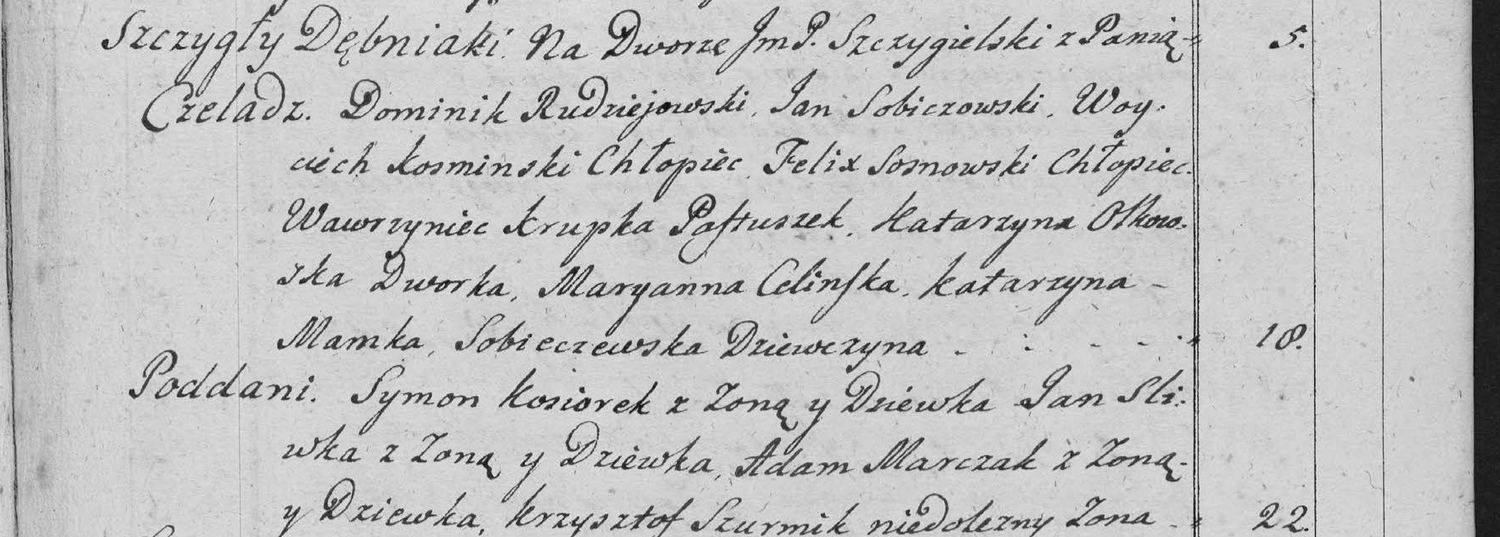 Szczygły Dębniaki. Na Dworze JmP. Szczygielski z Panią - 5.
Czeladz. Dominik Rudziejowski, Jan Sobiczowski, Woy-
ciech Kosminski Chłopiec, Felix Sosnowski Chłopiec.
Wawrzyniec Krupka Paſtuszek, Katarzyna Olkow-
ska Dworka, Maryanna Celinſka, Katarzyna -
Mamka, Sobieczewska Dziewczyna - - - - 18.
Poddani. Symon Kosiorek z Zoną y Dziewka Jan Sli-
wka z Zoną y Dziewka, Adam Marczak z Zoną -
y Dziewka, Krzysztof Szurmik niedolezny Zona - 22.